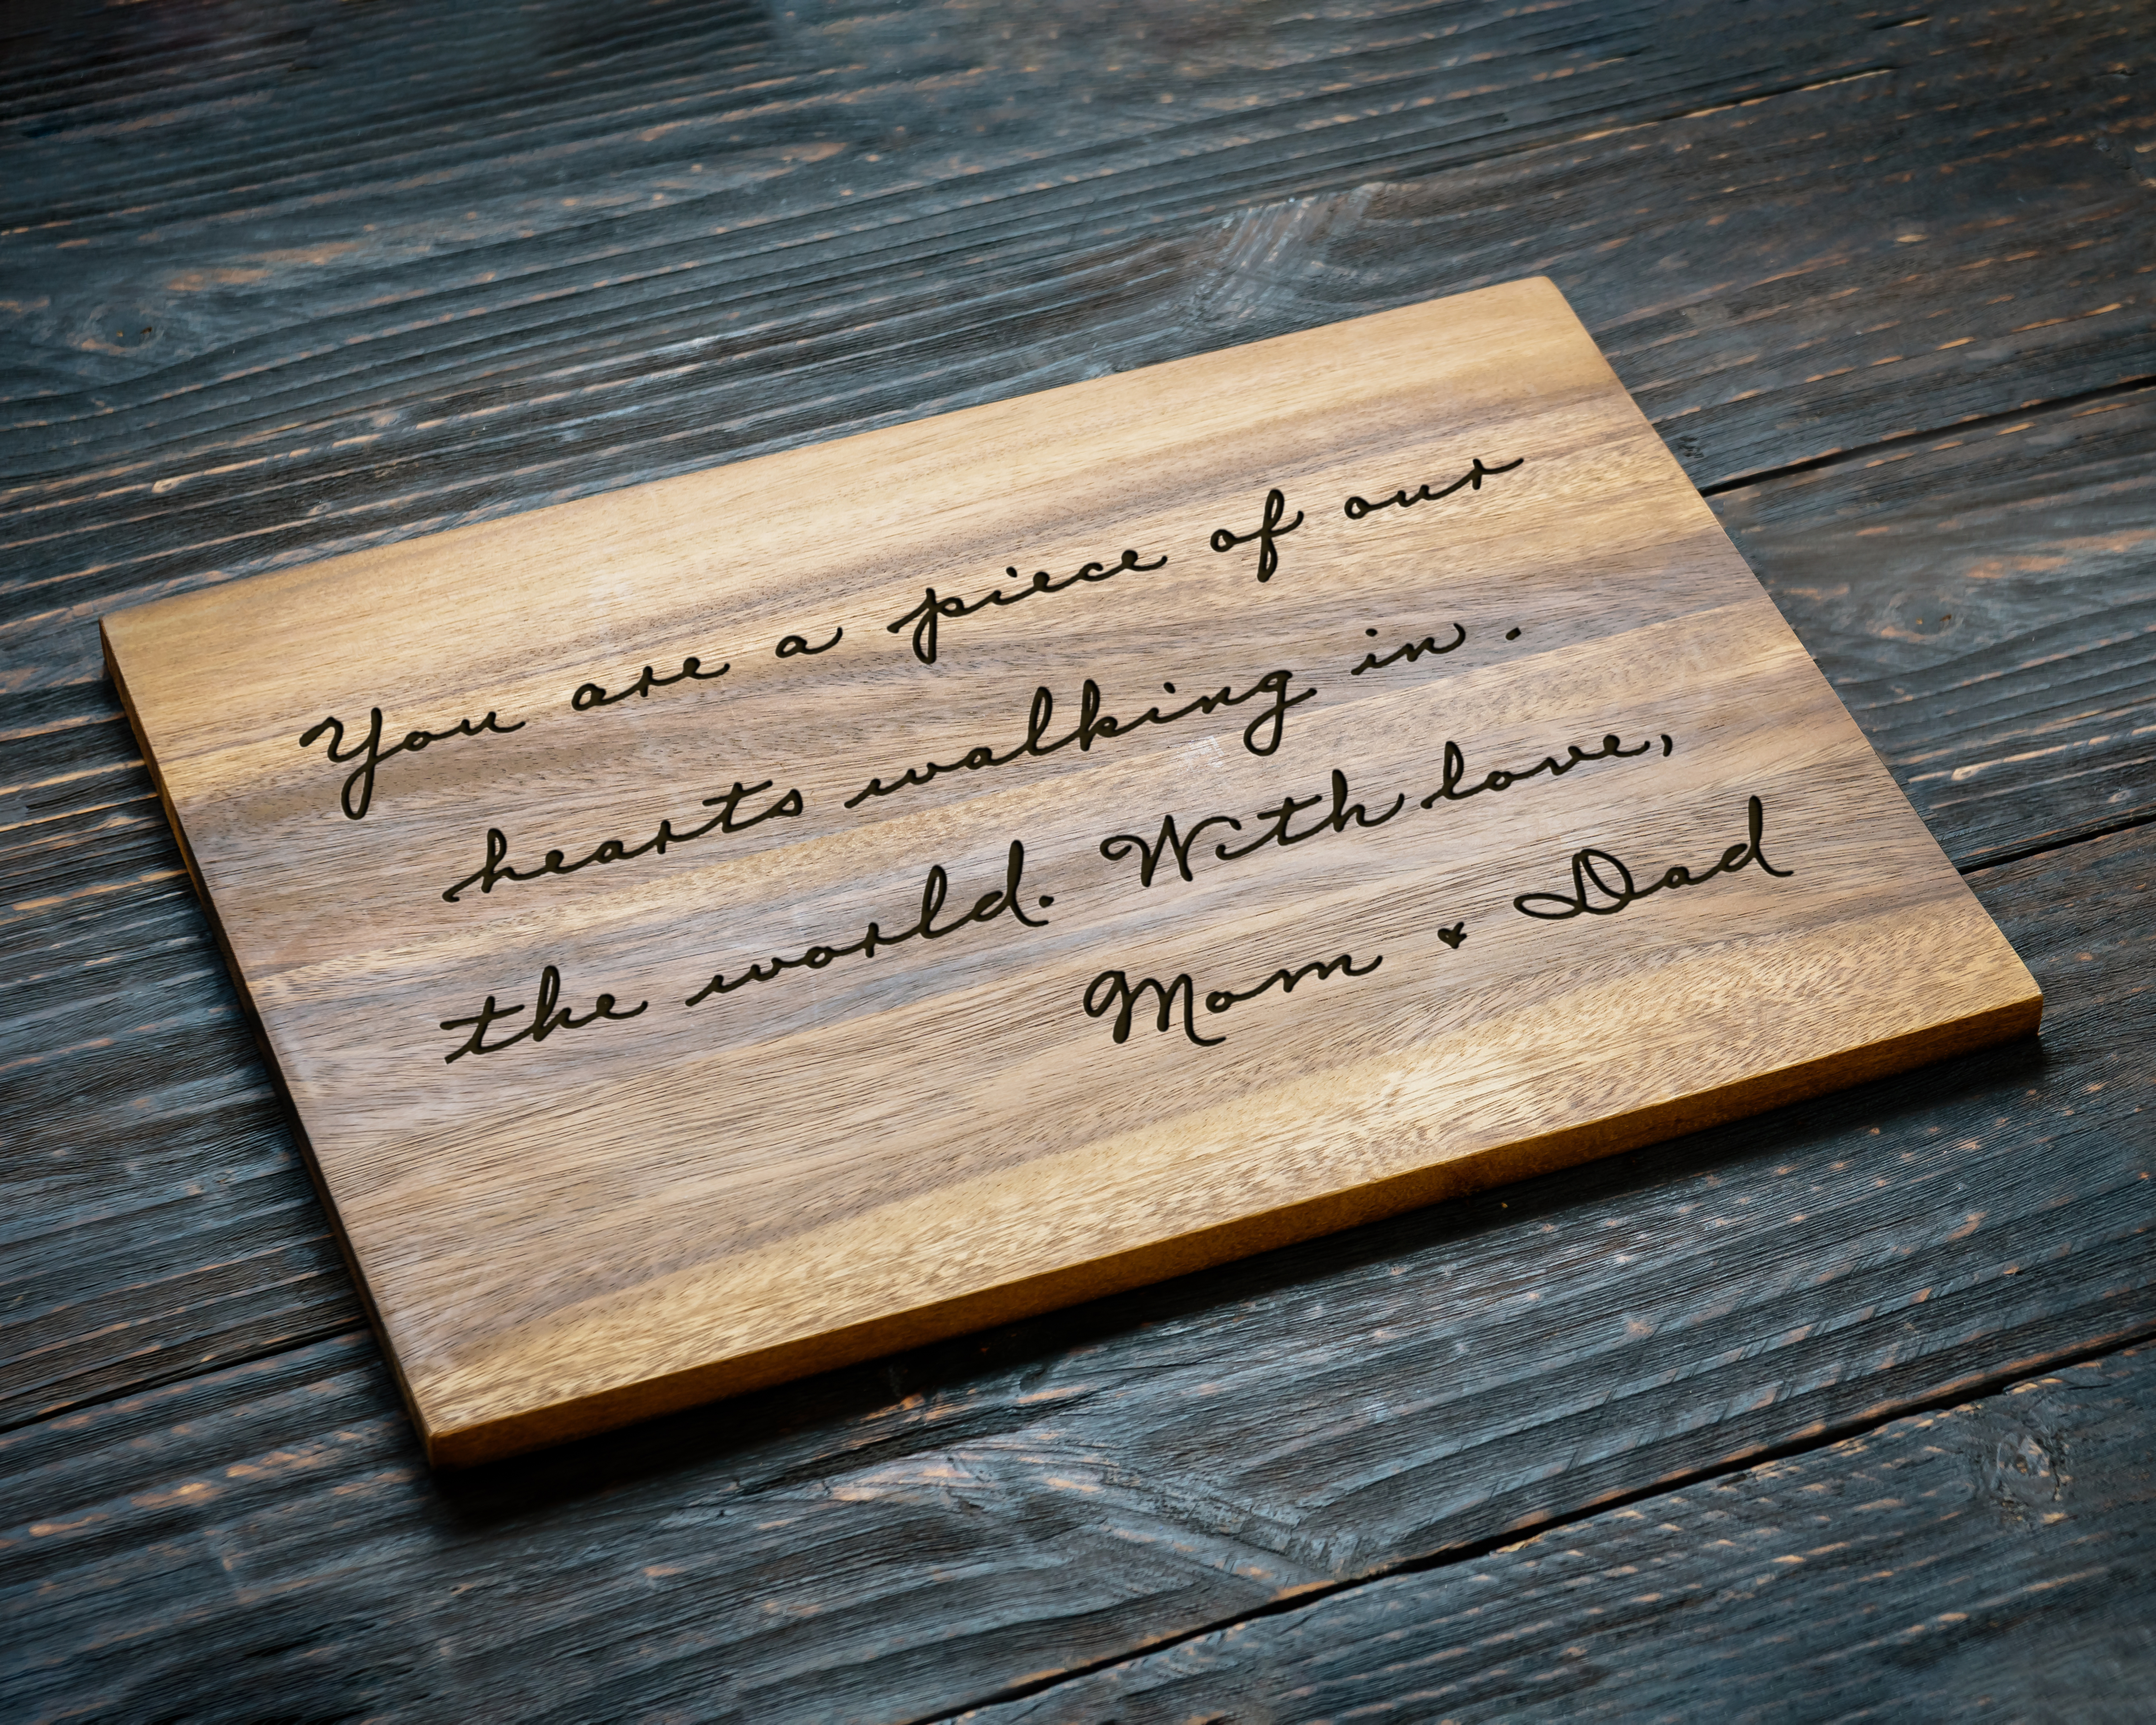 You are a piece of our
hearts walking in .
the world. With love,
Mom & Dad